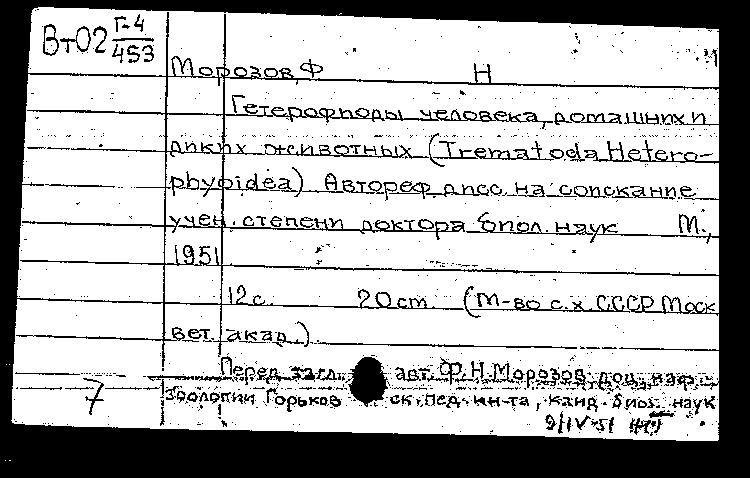 Вт02 Г-4/453
Морозов, Ф Н
Гетерофиоды человека, домашних и
диких животных (Trematoda Hetero-
phyoidea) Автореф дисс. на соискание
учен. степени доктора биол. наук М.,
1951
12 с. 20 cm. (М-во с.х. СССР Моск
вет. акад.)
Перед загл. авт. Ф. Н. Морозов, доц. каф.
Зоологии Горьков ск. пед. ин-та, канд. биол. наук
7
9/IV 51